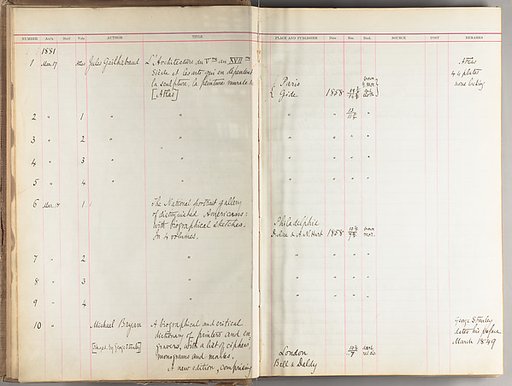 NUMBER Acc's Shelf Vols. AUTHOR TITLE PLACE AND PUBLISHER Date Size Bind. SOURCE COST REMARKS
1881
1 Mar. 17 Atlas Jules Gailhabaud L'Architecture du Vme au XVIIme
siècle et les arts qui en dépendent
la sculpture, la peinture murale &
[Atlas]
Paris
Gide 1858
Atlas
44 plates
2 " 1 " " " " "
3 " 2 " " " " "
4 " 3 " " " " "
5 " 4 " " " " "
6 Mar. 1 The National Portrait Gallery
of distinguished Americans:
with biographical sketches.
In 4 volumes.
Philadelphia
1858
7 " 2 " " " " "
8 " 3 " " " " "
9 " 4 " " " " "
10 " Michael Bryan A biographical and critical
dictionary of painters and en-
gravers, with a list of ciphers
monograms and marks.
A new edition, comprising
London
Bell & Daldy
George Stanley
dates his preface
March 1849